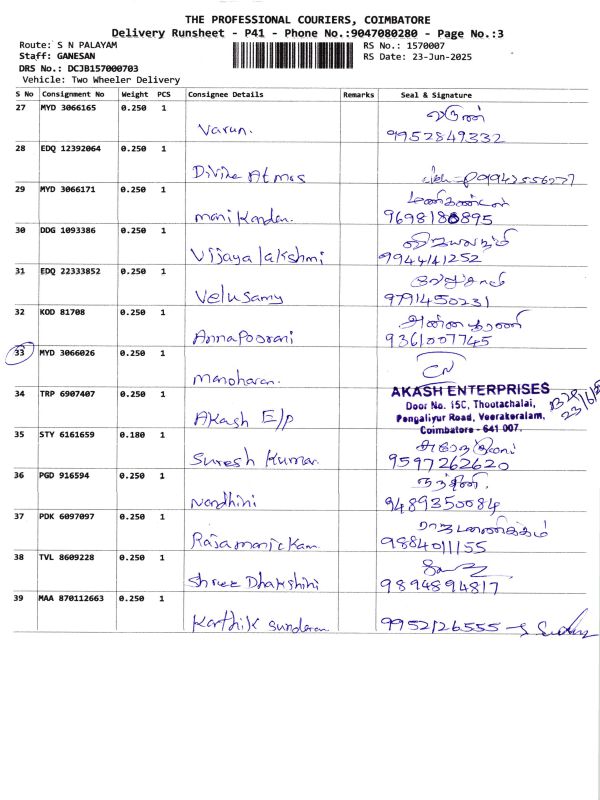 THE PROFESSIONAL COURIERS, COIMBATORE
Delivery Runsheet - P41 - Phone No.:9047080280 - Page No.:3
Route: S N PALAYAM
Staff: GANESAN
DRS No.: DCJB157000703
Vehicle: Two Wheeler Delivery
RS No.: 1570007
RS Date: 23-Jun-2025
S No Consignment No Weight PCS Consignee Details Remarks Seal & Signature
27 MYD 3066165 0.250 1 Varun. வருண் 9952849332
28 EDQ 12392064 0.250 1 Divine Atmas 9942556277
29 MYD 3066171 0.250 1 manikandan. மணிகண்டன் 9698180895
30 DDG 1093386 0.250 1 Vijayalakshmi 9944141252
31 EDQ 22333852 0.250 1 Velusamy வேலுசாமி 9791450231
32 KOD 81708 0.250 1 Annapoorani அன்னபூரணி 9361007745
33 MYD 3066026 0.250 1 manoharan.
34 TRP 6907407 0.250 1 Akash E/P
AKASH ENTERPRISES
Door No. 15C, Thootachalai,
Pongaliyur Road, Veerakeralam,
Coimbatore - 641 007.
35 STY 6161659 0.180 1 Suresh Kumar 9597262620
36 PGD 916594 0.250 1 Nandhini நந்தினி 9489350084
37 PDK 6097097 0.250 1 Rajamanickam ராஜமாணிக்கம் 9884011155
38 TVL 8609228 0.250 1 Shree Dhakshini 9894894817
39 MAA 870112663 0.250 1 Karthik Sundaran 9952126555